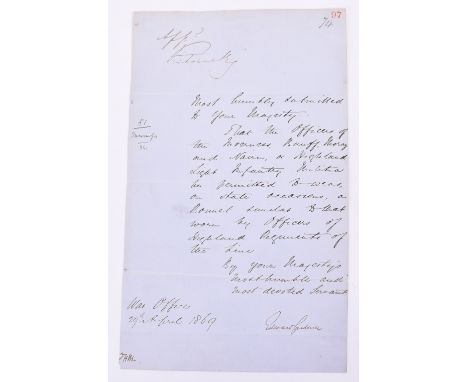 97
74
Appd
Most humbly submitted
to Your Majesty.
That the Officers of
the Inverness Banff Moray
and Nairn, or Highland
Light Infantry Militia
be permitted to wear,
on state occasions, a
Bonnet similar to that
worn by Officers of
Highland Regiments of
the Line
By your Majesty's
Most humble and
most devoted Servant
War Office
29th April 1869